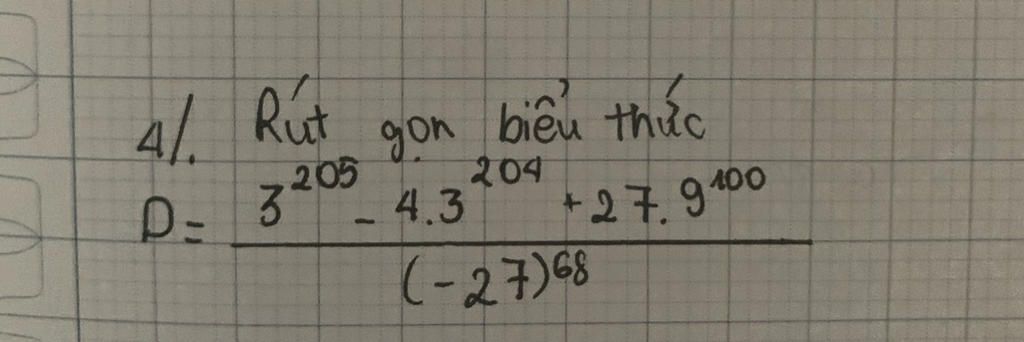 4/. Rút gọn biểu thức
D = \frac{3^{205} - 4.3^{204} + 27.9^{100}}{(-27)^{68}}